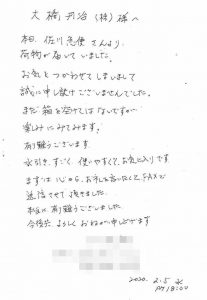 大橋丹治(株)様へ
本日、佐川急便さんより、
荷物が届いていました。
お気をつかわせてしまいまして
誠に申し訳けございませんでした。
まだ箱を空けてはないですが、
楽しみにみてみます。
有難うございます
水引き、すごく使いやすくて、お気に入りです
まずは心から、お礼を言いたくて、FAXで
送信させて頂きました。
本当に有難うございました
今後共、よろしくおねがい申し上げます
2020. 2.5 水
PM 18:00